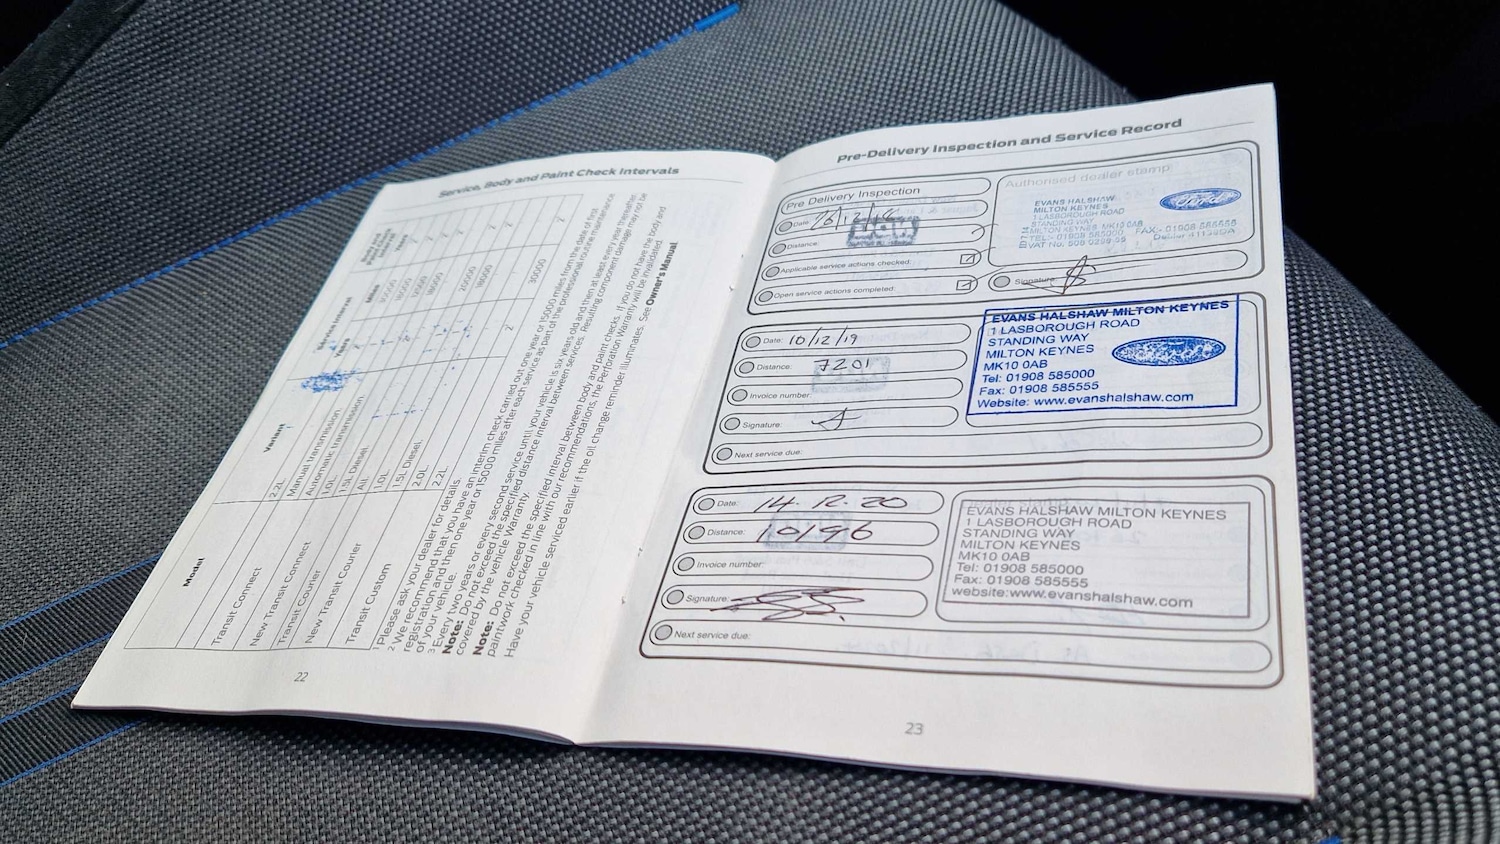 Service, Body and Paint Check Intervals
Model
Variant
Service Interval
Years
Miles
Body and Paint Check Interval
Years
Transit Connect
2.2L
Manual transmission
New Transit Connect
Automatic transmission
1.0L
1.5L Diesel
Transit Courier
All
New Transit Courier
1.0L
1.5L Diesel
Transit Custom
2.0L
2.2L
20000
18000
2
30000
2
1 Please ask your dealer for details.
2 We recommend that you have an interim check carried out one year or 15000 miles from the date of first
registration and then one year or 15000 miles after each service as part of the professional routine maintenance
of your vehicle.
3 Every two years or every second service until your vehicle is six years old and then at least every year thereafter.
Note: Do not exceed the specified distance interval between services. Resulting component damage may not be
covered by the vehicle Warranty.
Note: Do not exceed the specified interval between body and paint checks. If you do not have the body and
paintwork checked in line with our recommendations, the Perforation Warranty will be invalidated.
Have your vehicle serviced earlier if the oil change reminder illuminates. See Owner's Manual
22
Pre-Delivery Inspection and Service Record
Pre Delivery Inspection
Date:
Distance:
Applicable service actions checked:
Open service actions completed:
Authorised dealer stamp:
EVANS HALSHAW
MILTON KEYNES
1 LASBOROUGH ROAD
STANDING WAY
MILTON KEYNES MK10 0AB
TEL: 01908 585000 FAX: 01908 585555
VAT No.
Ford
Signature:
Date: 10/12/19
Distance: 7201
Invoice number:
Signature:
Next service due:
EVANS HALSHAW MILTON KEYNES
1 LASBOROUGH ROAD
STANDING WAY
MILTON KEYNES
MK10 0AB
Tel: 01908 585000
Fax: 01908 585555
Website: www.evanshalshaw.com
Date: 14.12.20
Distance: 10196
Invoice number:
Signature:
Next service due:
EVANS HALSHAW MILTON KEYNES
1 LASBOROUGH ROAD
STANDING WAY
MILTON KEYNES
MK10 0AB
Tel: 01908 585000
Fax: 01908 585555
website:www.evanshalshaw.com
23